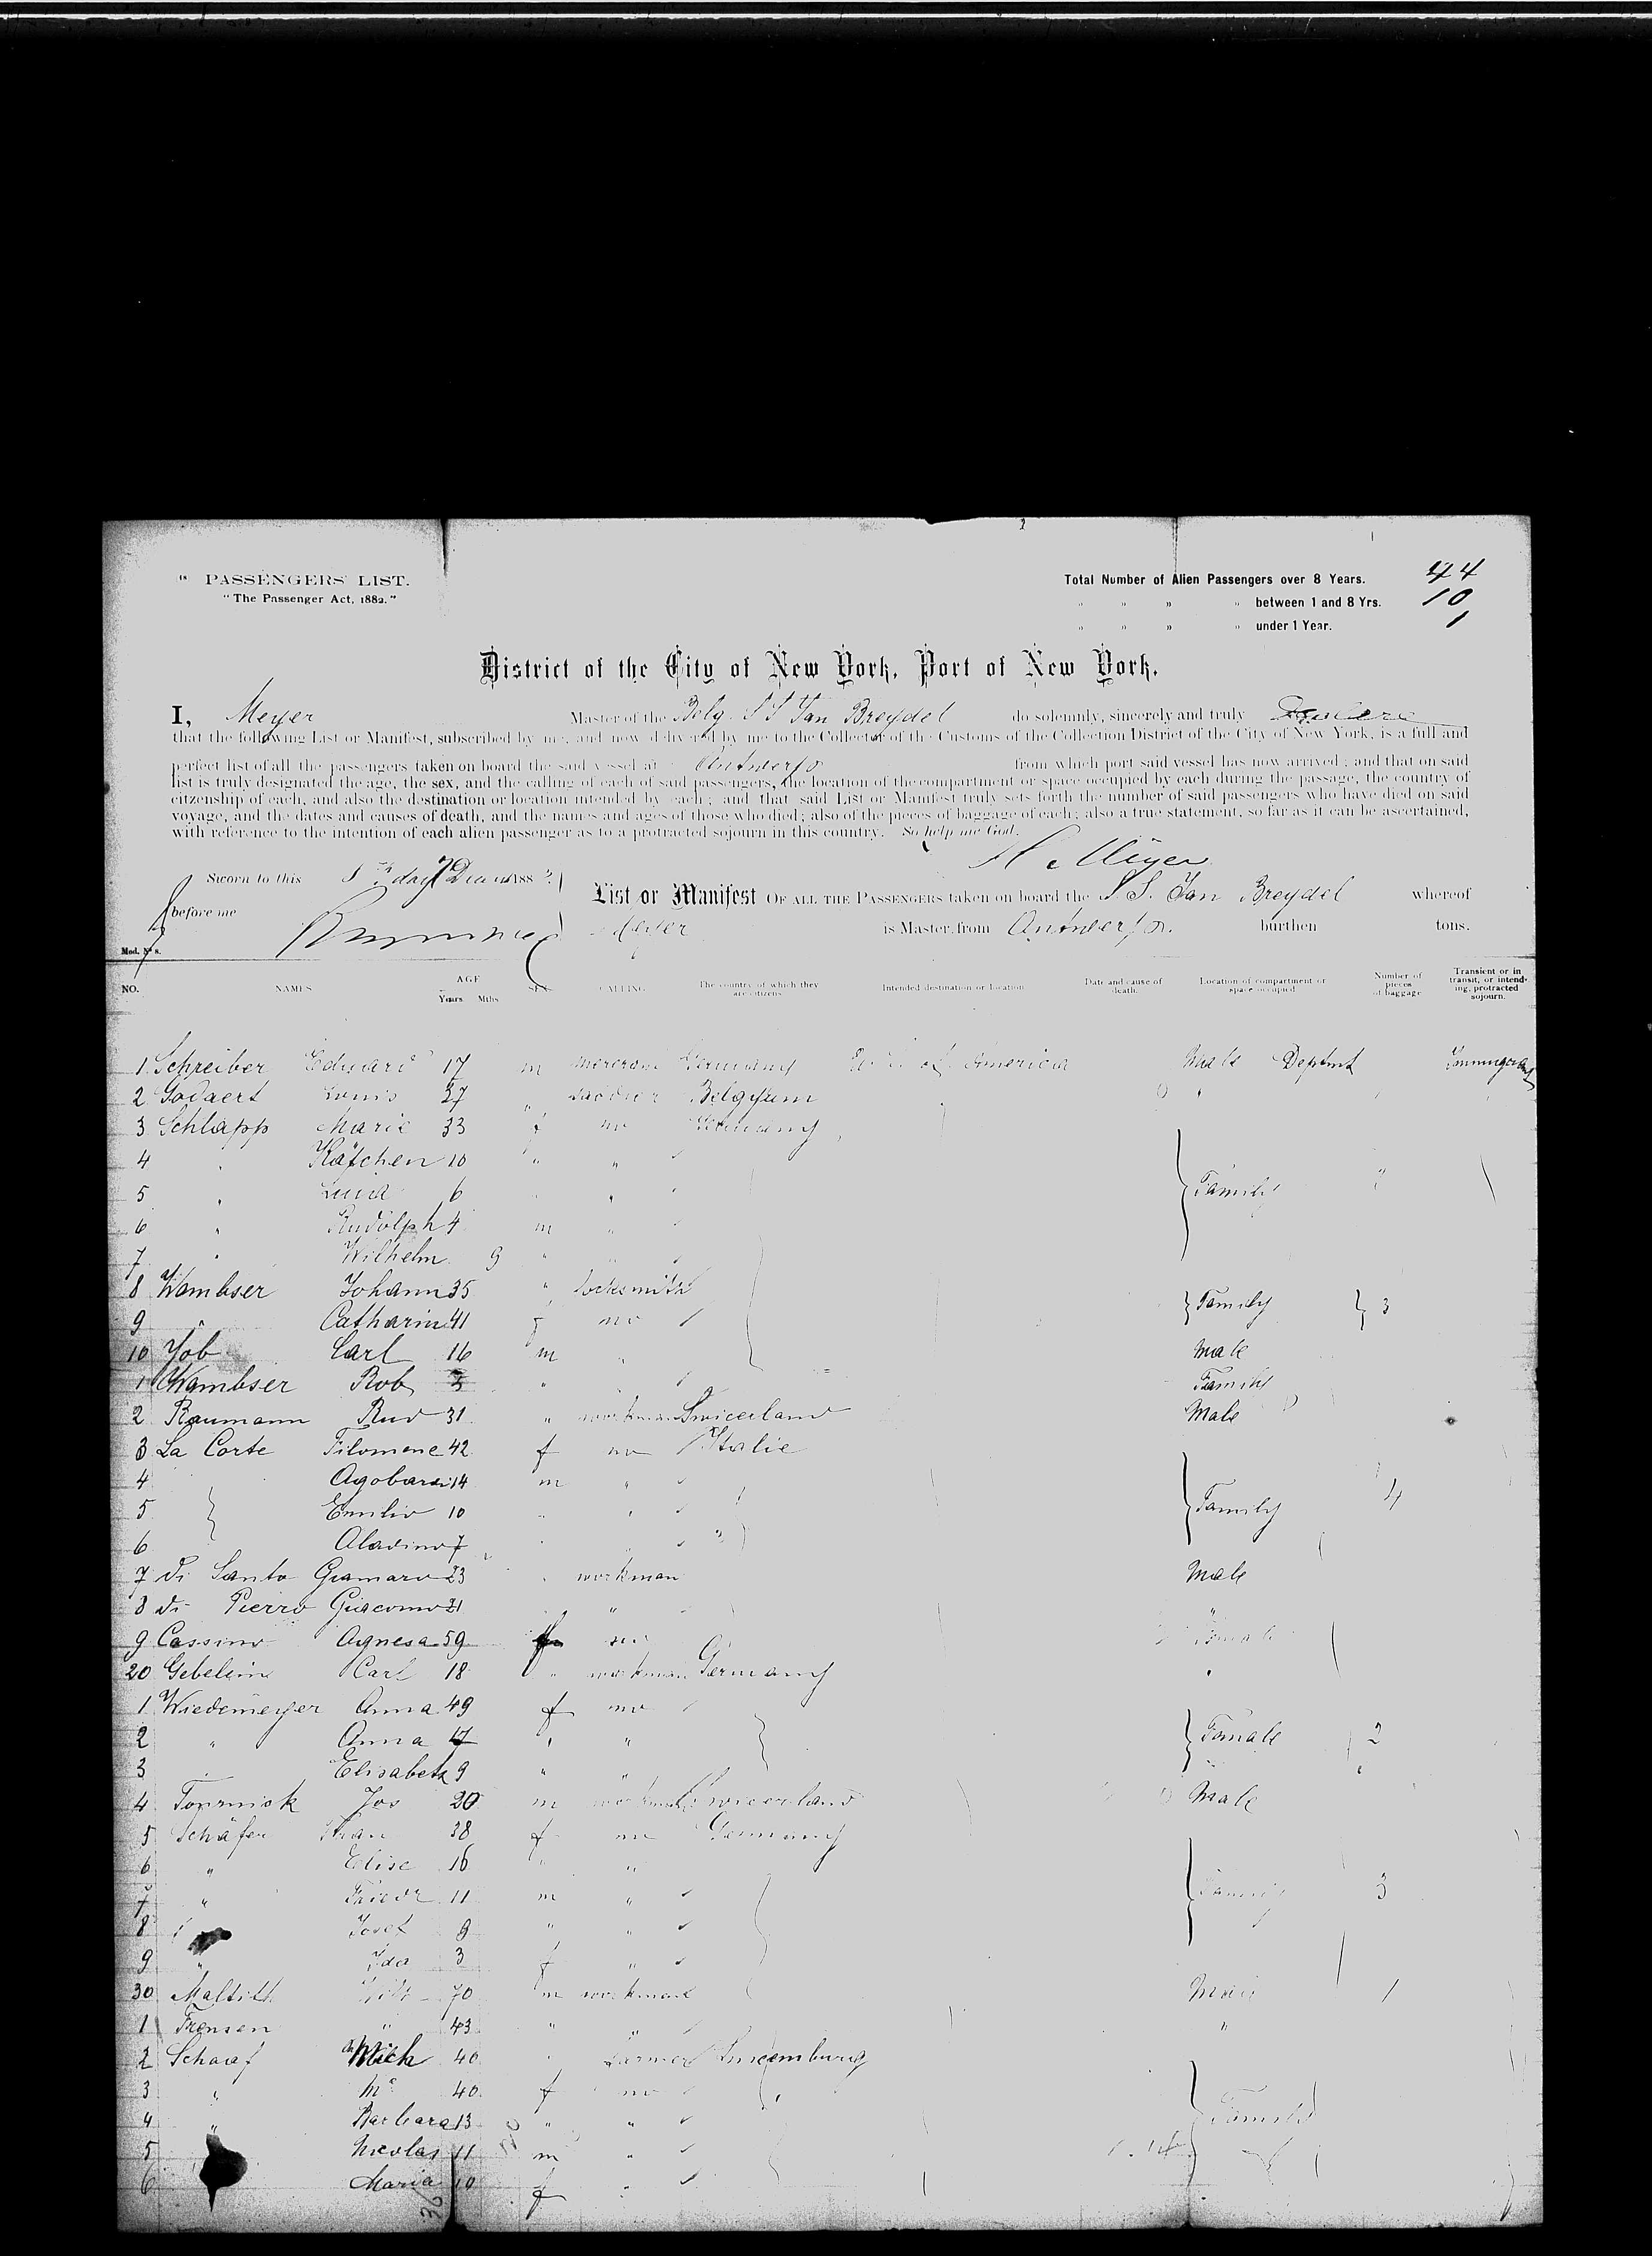 PASSENGERS' LIST.
"The Passenger Act, 1882."
Total Number of Alien Passengers over 8 Years. 44
" " " " between 1 and 8 Yrs. 10
" " " " under 1 Year. 1
District of the City of New York, Port of New York.
I, Meyer Master of the Belg. S S Jan Breydel do solemnly, sincerely and truly
that the following List or Manifest, subscribed by me, and now delivered by me to the Collector of the Customs of the Collection District of the City of New York, is a full and
perfect list of all the passengers taken on board the said vessel at Antwerp from which port said vessel has now arrived; and that on said
list is truly designated the age, the sex, and the calling of each of said passengers, the location of the compartment or space occupied by each during the passage, the country of
citzenship of each, and also the destination or location intended by each; and that said List or Manifest truly sets forth the number of said passengers who have died on said
voyage, and the dates and causes of death, and the names and ages of those who died; also of the pieces of baggage of each; also a true statement, so far as it can be ascertained,
with reference to the intention of each alien passenger as to a protracted sojourn in this country. So help me God.
H. Meyer
Sworn to this day 188
List or Manifest OF ALL THE PASSENGERS taken on board the S.S. Jan Breydel whereof
before me
Meyer is Master, from Antwerp. burthen tons.
Mod. No 8.
NO. NAMES AGE Years Mths SEX CALLING The country of which they are citizens Intended destination or location Date and cause of death. Location of compartment or space occupied Number of pieces of baggage Transient or in transit, or intending, protracted sojourn.
1 Schreiber Eduard 17 m Germany of America Male Deptmt
2 Godaert Louis 37 " Belgyum "
3 Schlapp Marie 33 f no Germany
4 " Käfchen 10 " "
5 " 6 " " Family
6 " Rudolph 4 m "
7 " Wilhelm 9 " "
8 Wambser Johann 35 " locksmith Family 3
9 " Catharin 41 f no
10 Job Carl 16 m " male
1 Wambser Rob 3 " Family
2 Raumann Rud 31 " workman Swicerland Male
3 La Corte Filomene 42 f no Italie
4 14 m "
5 Emilio 10 " " Family 4
6 Aladino 7 " "
7 di Santo 23 " workman Male
8 di Pierro Giacomo 31 " " "
9 Cassino Agnesa 59 f no
20 Gebelein Carl 18 " workman Germany "
1 Wiedemeyer Anna 49 f no
2 " Anna 17 " " Female 2
3 " Elisabeth 9 " "
4 Jos 20 m workman Swicerland Male
5 Schäfer 38 f no Germany
6 " Elise 16 " "
7 " Friedr 11 m " Family 3
8 Josef 9 " "
9 " Ida 3 f "
30 70 m workman Male 1
1 Fransen " 43 " " "
2 Schaaf Mich 40 " Farmer Luxemburg
3 " 40 f no "
4 " Barbara 13 " " Family
5 Nicolas 11 m "
6 Maria 10 f "
36